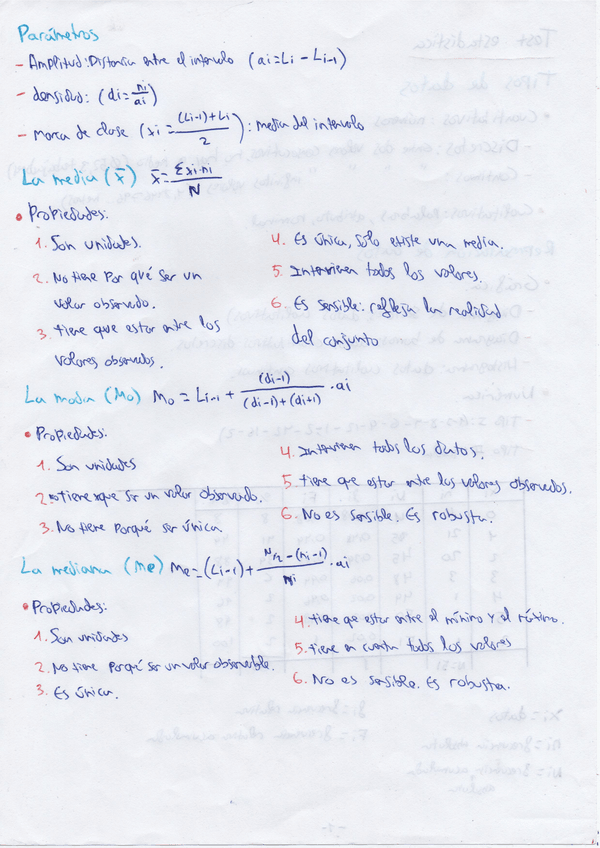 Parámetros
- Amplitud: Distancia entre el intervalo (ai = Li - Li-1)
- densidad: (di = ni/ai)
- Marca de clase (xi = (Li-1) + Li / 2): media del intervalo
La media (x̄) x̄ = Σxi·ni / N
• Propiedades:
1. Son unidades.
2. No tiene por qué ser un
valor observado.
3. tiene que estar entre los
valores observados.
4. Es única, sólo existe una media.
5. Intervienen todos los valores.
6. Es sensible: refleja la realidad
del conjunto
La moda (Mo) Mo = Li-1 + (di-1) / (di-1)+(di+1) · ai
• Propiedades:
1. Son unidades
2. tiene que ser un valor observado.
3. No tiene porqué ser única.
4. Intervienen todos los datos.
5. tiene que estar entre los valores observados.
6. No es sensible. Es robusta.
La mediana (Me) Me = (Li-1) + N/2 - (Ni-1) / ni · ai
• Propiedades:
1. Son unidades
2. No tiene porqué ser un valor observable.
3. Es única.
4. tiene que estar entre el mínimo y el máximo.
5. tiene en cuenta todos los valores
6. No es sensible. Es robusta.